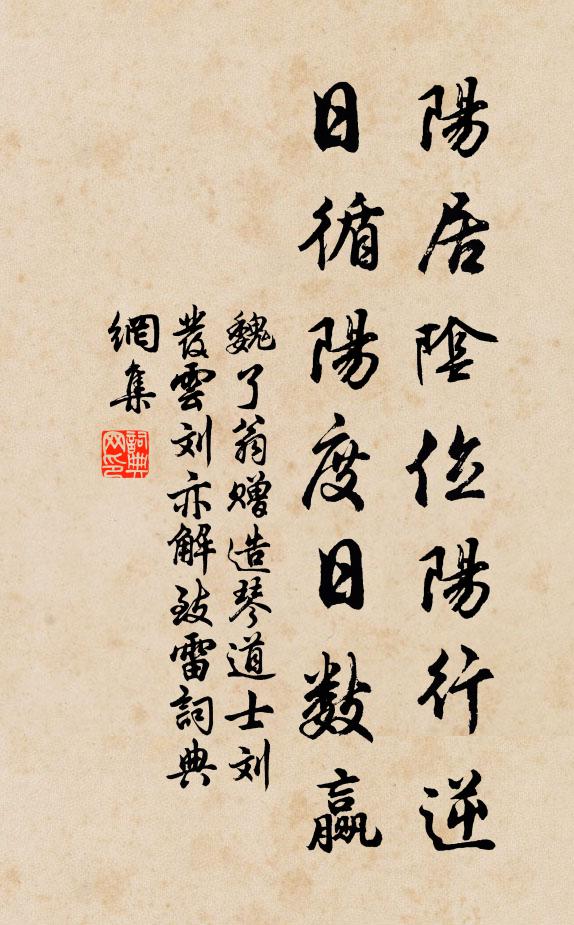 陽居陰位陽行逆
日循陽度日數贏
魏了翁赠造琴道士刘
發雲刘亦解致雷詞典
網集
詞典网印